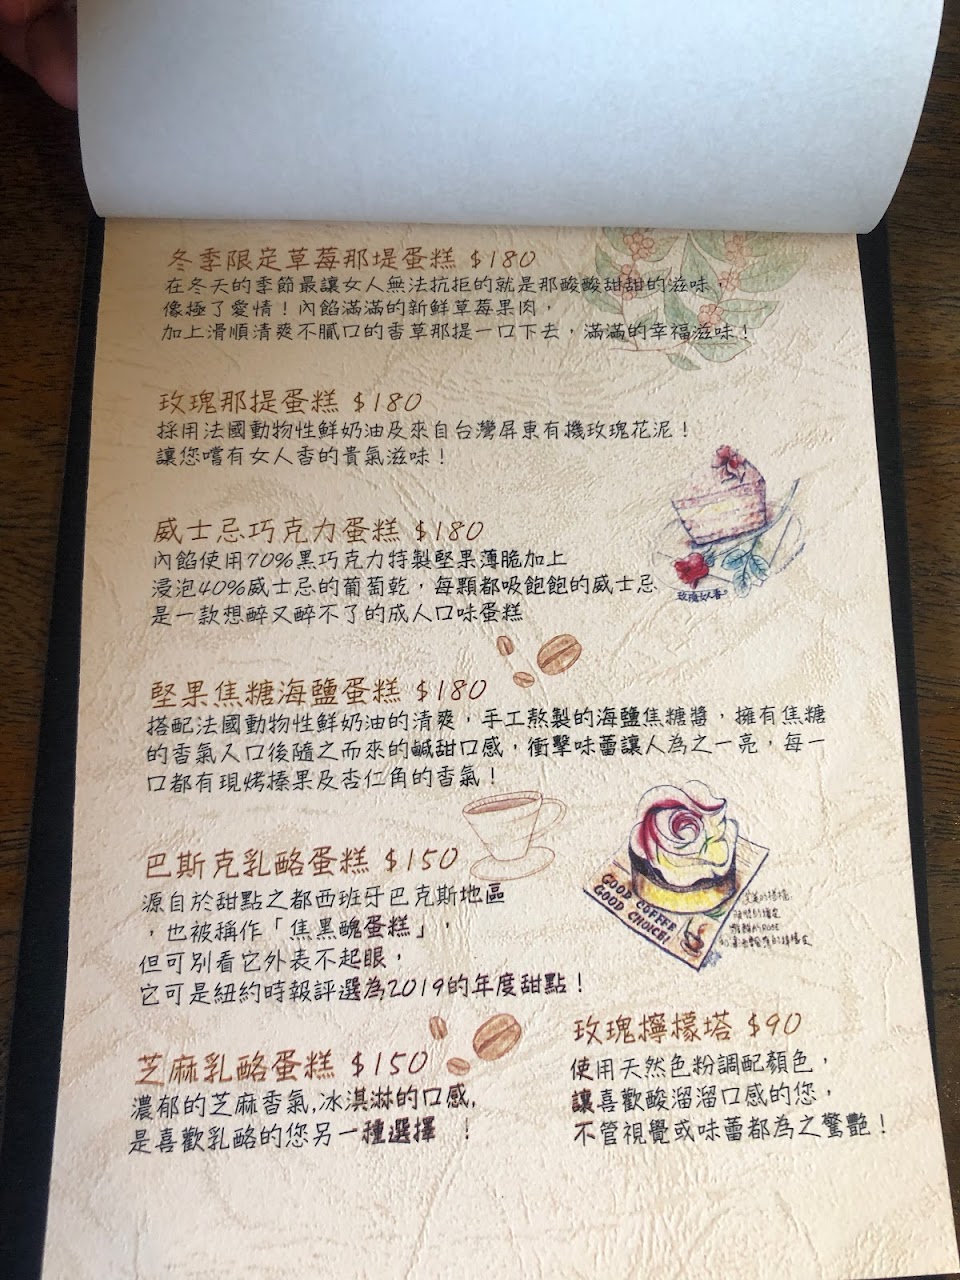 冬季限定草莓那堤蛋糕 $180
在冬天的季節最讓女人無法抗拒的就是那酸酸甜甜的滋味，
像極了愛情！內餡滿滿的新鮮草莓果肉，
加上滑順清爽不膩口的香草那提一口下去，滿滿的幸福滋味！
玫瑰那提蛋糕 $180
採用法國動物性鮮奶油及來自台灣屏東有機玫瑰花泥！
讓您嚐有女人香的貴氣滋味！
威士忌巧克力蛋糕 $180
內餡使用70%黑巧克力特製堅果薄脆加上
浸泡40%威士忌的葡萄乾，每顆都吸飽飽的威士忌
是一款想醉又醉不了的成人口味蛋糕
玫瑰女人香
堅果焦糖海鹽蛋糕 $180
搭配法國動物性鮮奶油的清爽，手工熬製的海鹽焦糖醬，擁有焦糖
的香氣入口後隨之而來的鹹甜口感，衝擊味蕾讓人為之一亮，每一
口都有現烤榛果及杏仁角的香氣！
巴斯克乳酪蛋糕 $150
源自於甜點之都西班牙巴克斯地區
，也被稱作「焦黑醜蛋糕」，
但可別看它外表不起眼，
它可是紐約時報評選為2019的年度甜點！
GOOD COFFEE
GOOD CHOICE!
芝麻乳酪蛋糕 $150
濃郁的芝麻香氣,冰淇淋的口感,
是喜歡乳酪的您另一種選擇 ！
玫瑰檸檬塔 $90
使用天然色粉調配顏色，
讓喜歡酸溜溜口感的您，
不管視覺或味蕾都為之驚艷！